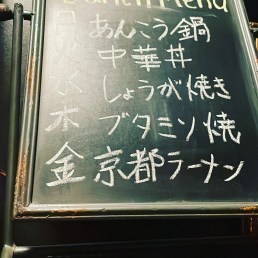 Lunch Menu
月 あんこう鍋
火 中華丼
水 しょうが焼き
木 ブタミソ焼
金 京都ラーメン